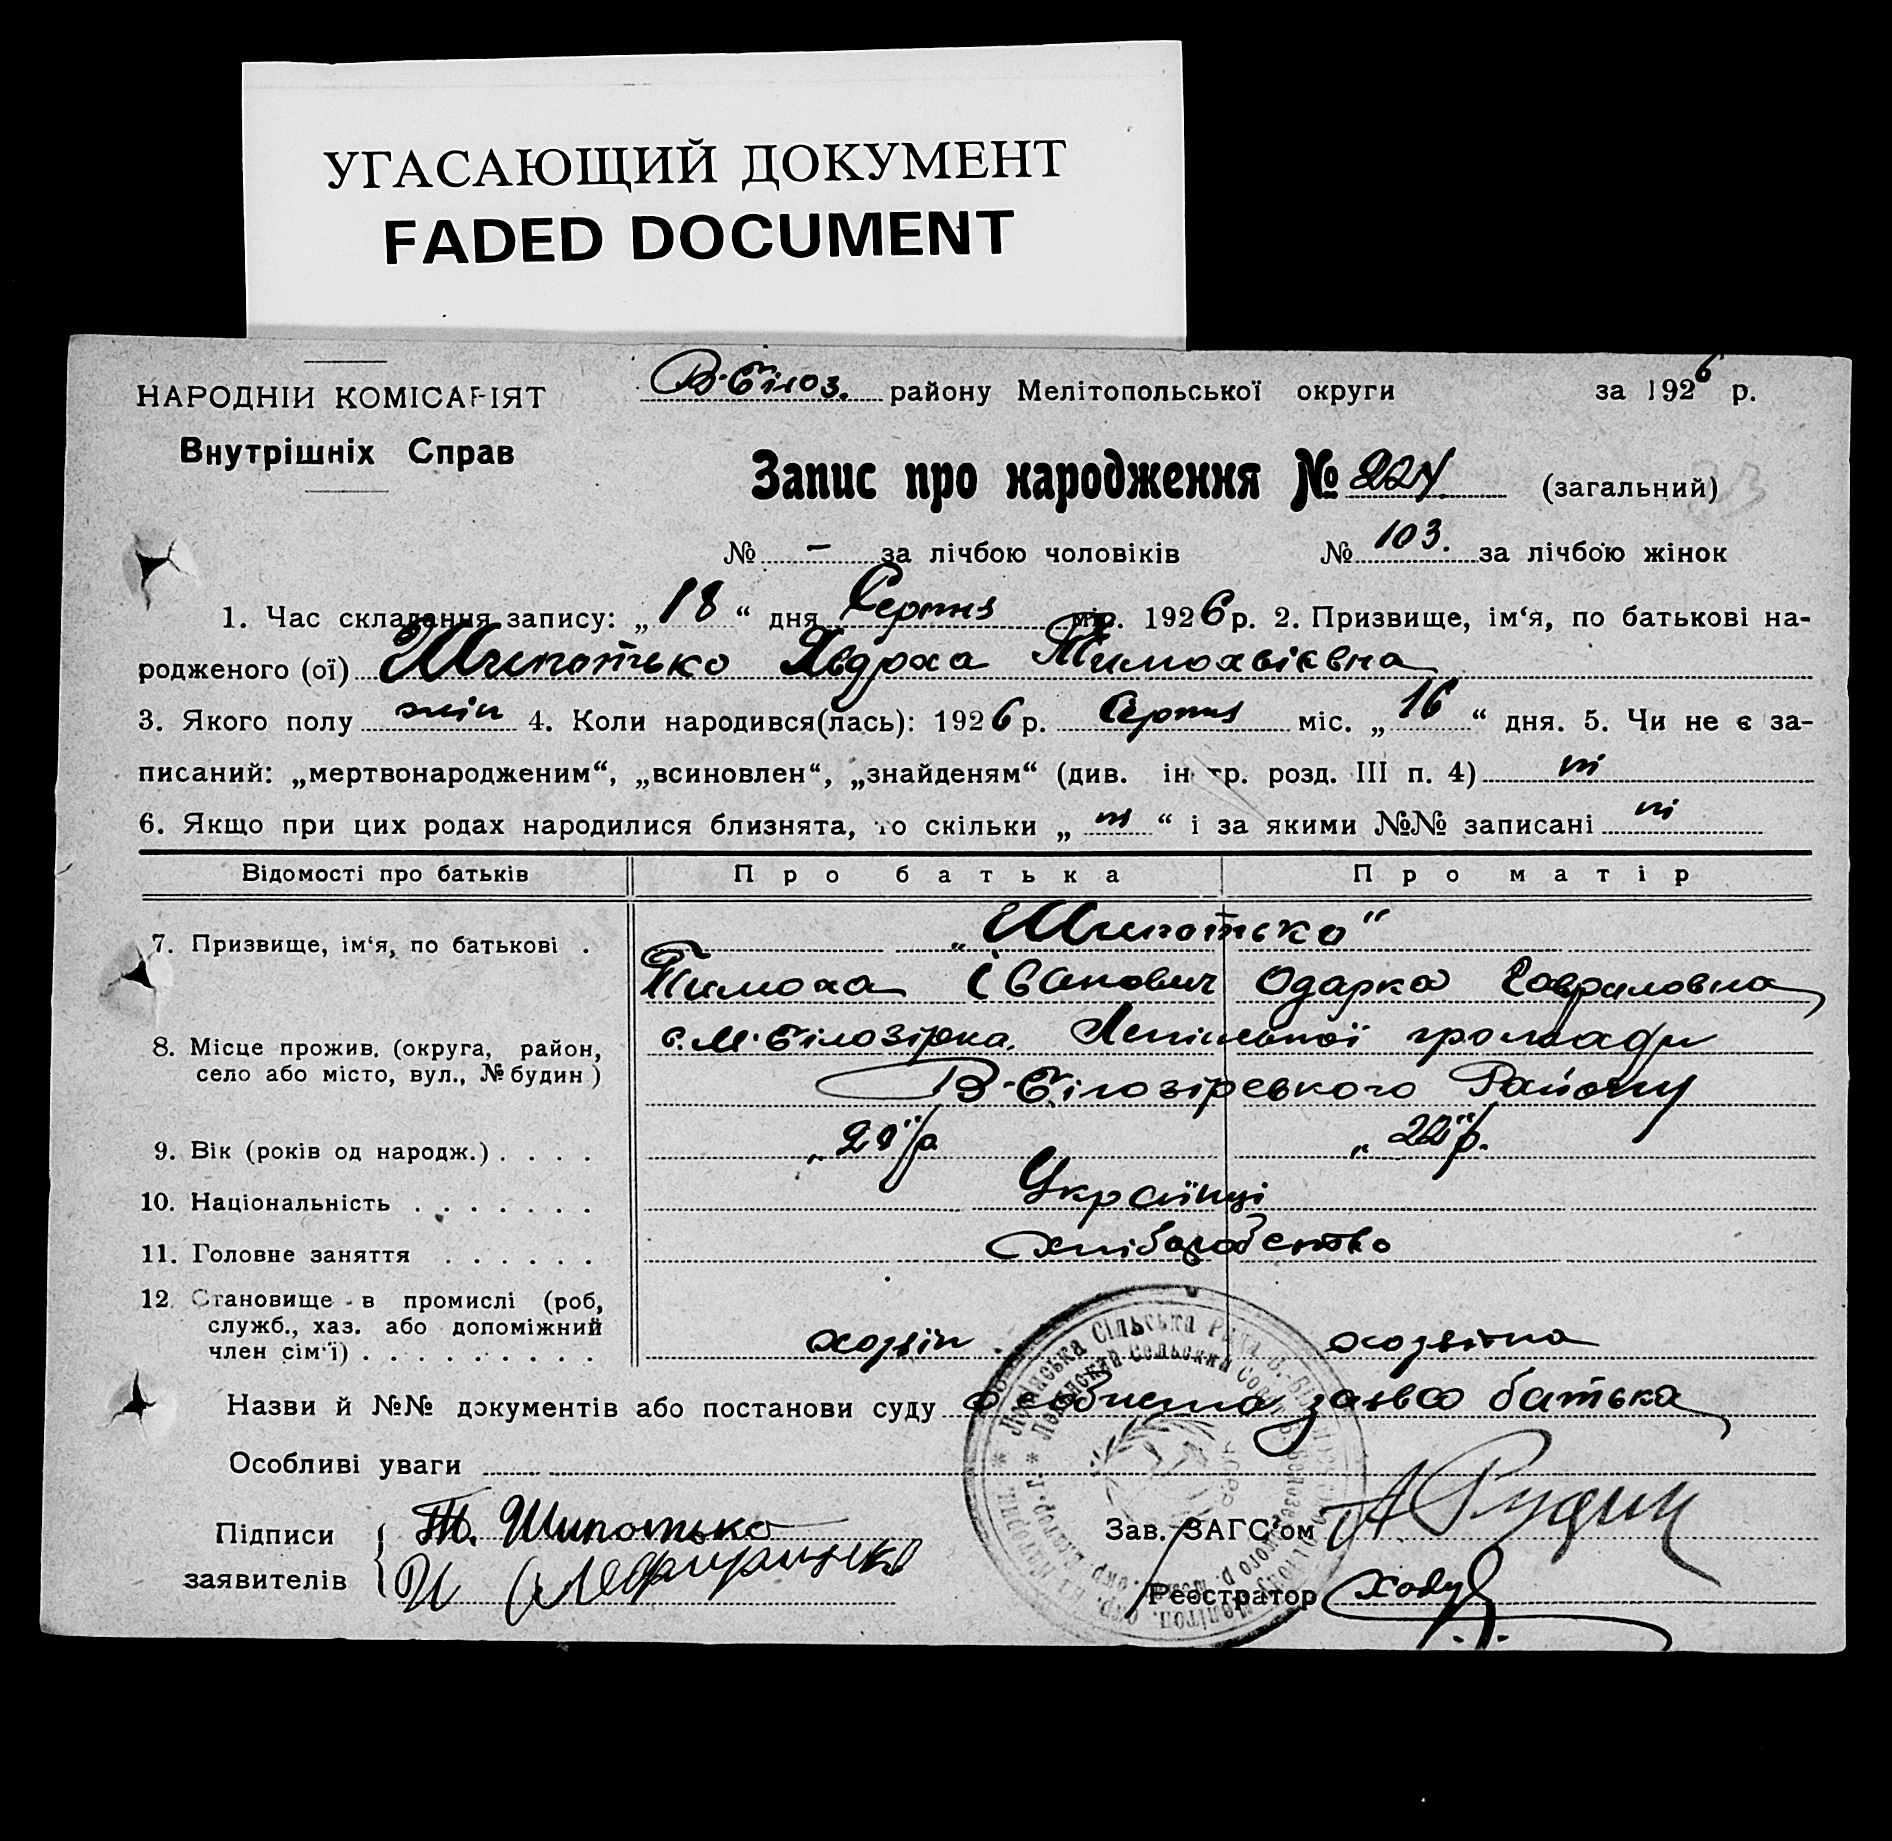 УГАСАЮЩИЙ ДОКУМЕНТ
FADED DOCUMENT
НАРОДНІЙ КОМІСАРІЯТ
Внутрішніх Справ
В-Білоз. району Мелітопольської округи за 1926 р.
Запис про народження № 224 (загальний)
№ - за лічбою чоловіків № 103. за лічбою жінок
1. Час складання запису: „18“ дня Серпня міс. 1926 р. 2. Призвище, ім‘я, по батькові на-
родженого (ої) Шипотько Явдоха Тимохвіївна
3. Якого полу жін 4. Коли народився(лась): 1926 р. Серпня міс. „16“ дня. 5. Чи не є за-
писаний: „мертвонародженим“, „всиновлен“, „знайденям“ (див. інстр. розд. III п. 4) ні
6. Якщо при цих родах народилися близнята, то скільки „ні“ і за якими №№ записані ні
Відомості про батьків Про батька Про матір
7. Призвище, ім‘я, по батькові . „Шипотько“
Тимоха Іванович Одарка Гавриловна
8. Місце прожив. (округа, район, с. М. Білозірка. громади
село або місто, вул., № будин) В-Білозірського Району
9. Вік (років од народж.) . . . . „ 22 р.
10. Національність . . . . . . . Українці
11. Головне заняття . . . . . . хліборобство
12. Становище в промислі (роб,
служб., хаз. або допоміжний
член сім‘ї) . . . . . . . . . хозяін хозяйка
Назви й №№ документів або постанови суду особиста заява батька
Особливі уваги
Підписи Т. Шипотько Зав. ЗАГС‘ом А
заявителів И Реєстратор